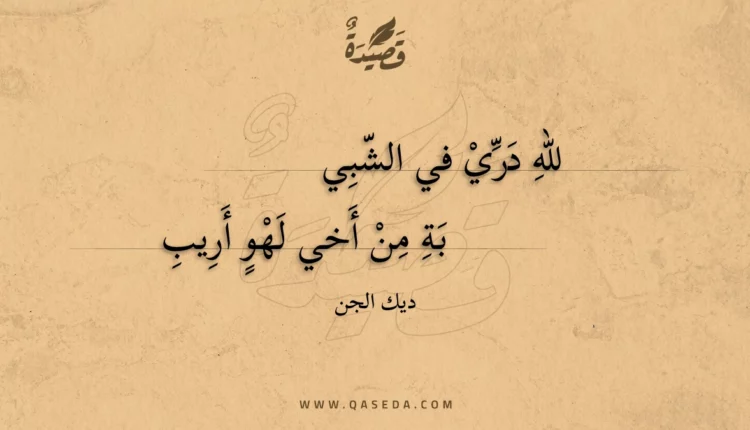 قَصِيدَةٌ
للهِ دَرِّيْ في الشّبِي
بَةِ مِنْ أَخي لَهْوٍ أَرِيبِ
ديك الجن
WWW.QASEDA.COM